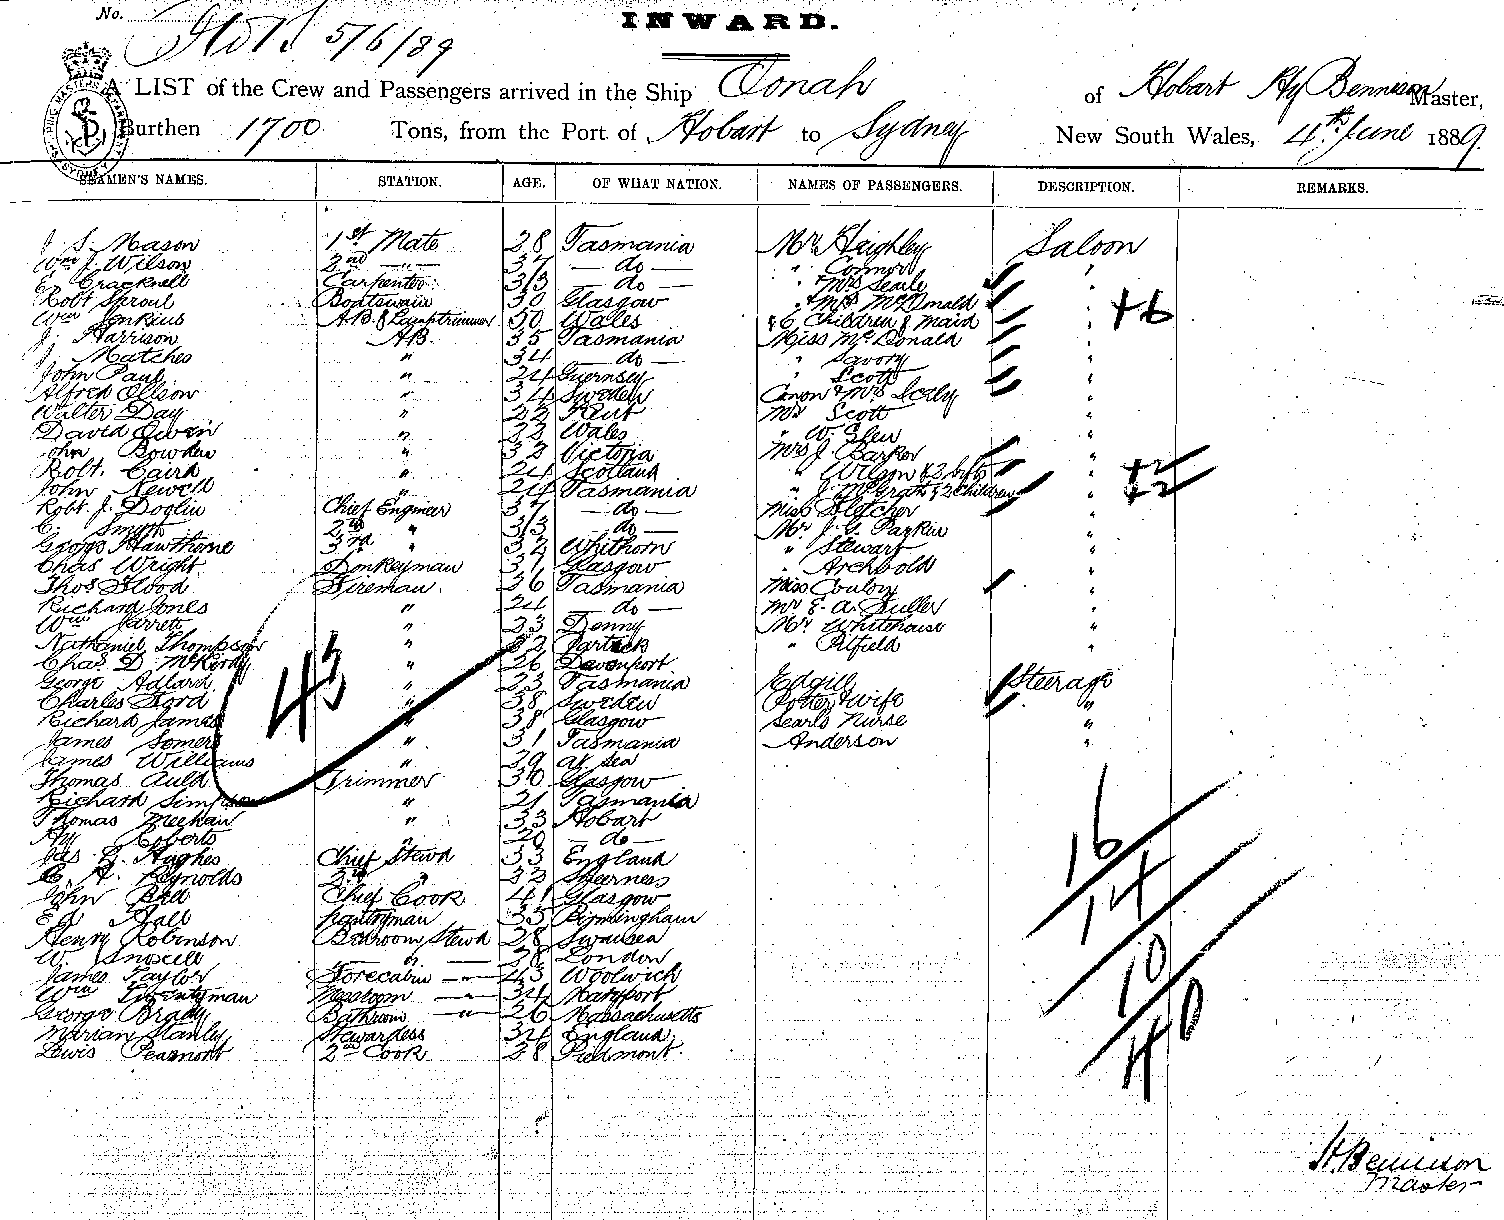 No.
INWARD.
5/6/89
A LIST of the Crew and Passengers arrived in the Ship Oonah of Hobart Hy Bennison Master,
Burthen 1700 Tons, from the Port of Hobart to Sydney New South Wales, 4th June 1889.
SEAMEN'S NAMES. STATION. AGE. OF WHAT NATION. NAMES OF PASSENGERS. DESCRIPTION. REMARKS.
J. S. Mason 1st Mate 28 Tasmania Mr Heighley Saloon
Wm J. Wilson 2nd — " — 37 — do — " Connor "
E. Cracknell Carpenter 33 — do — " & Mrs Searle "
Robt Sproul Boatswain 30 Glasgow " & Mrs McDonald " +6
Wm Jenkins A.B. & Lamptrimmer 50 Wales & 6 Children & Maid "
J. Harrison A.B. 35 Tasmania Miss McDonald "
J. Matches " 34 — do — " Savory "
John Paul " 24 Guernsey " Scott "
Alfred Ellison " 34 Sweden Canon & Mrs "
Walter Day " 22 Kent Mr Scott "
David Owen " 22 Wales " W. "
John Bowden " 32 Victoria Mrs J. Barker "
Robt. Caird " 24 Scotland " Wilson & 2 " +2
John Newell " 24 Tasmania " J. McGrath & 2 Children " +2
Robt. J. Doglin Chief Engineer 37 — do — Miss Fletcher "
C. Smyth 2nd " 33 — do — Mr J. G. Parker "
George Hawthorne 3rd " 32 Whithorn " Stewart "
Chas Wright Donkeyman 37 Glasgow " Archbold "
Thos Flood Fireman 36 Tasmania Miss "
Richard Jones " 24 — do — Mr E. A. Fuller "
Wm Jarrett " 23 Denny Mr Whitehouse "
Nathaniel Thompson " 32 Partick " Alfield "
Chas. D. McKirdy " 26 Davenport
George Adlard " 23 Tasmania Edgill Steerage
Charles Ford " 38 Sweden Potter & wife "
Richard James " 38 Glasgow Searls Nurse "
James Somers " 31 Tasmania Anderson "
James Williams " 39 at sea
Thomas Auld Trimmer 30 Glasgow
Richard Simpson " 21 Tasmania
Thomas Meehan " 33 Hobart
Hy Roberts " 20 — do —
43
Jas. G. Hughes Chief Stewd 33 England
C. A. Reynolds 2nd " 32 Sheerness
John Bell Chief Cook 41 Glasgow
Ed Hall pantryman 35 Birmingham
Henry Robinson Bedroom Stewd 28 Swansea
W. Snoxell — " — 28 London
James Taylor Forecabin — " — 43 Woolwich
Wm Twentyman Messroom — " — 34 Maryport
George Brady Bathroom — " — 26 Massachusetts
Marian Stanly Stewardess 34 England
Lewis Peamont 2nd Cook 28 Piedmont.
16
14
10
40
H. Bennison
Master